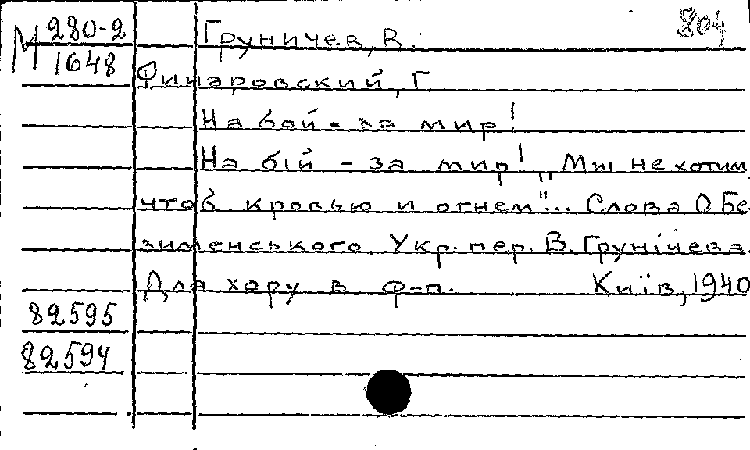 М 280-2
1648
804
Груничев, В.
Финаровский, Г
На бой - за мир!
На бій - за мир! „Мы не хотим,
чтоб кровью и огнем"... Слова О Бе
зименського. Укр. пер. В. Грунічева.
Для хору в ф-п. Київ, 1940
82595
82594